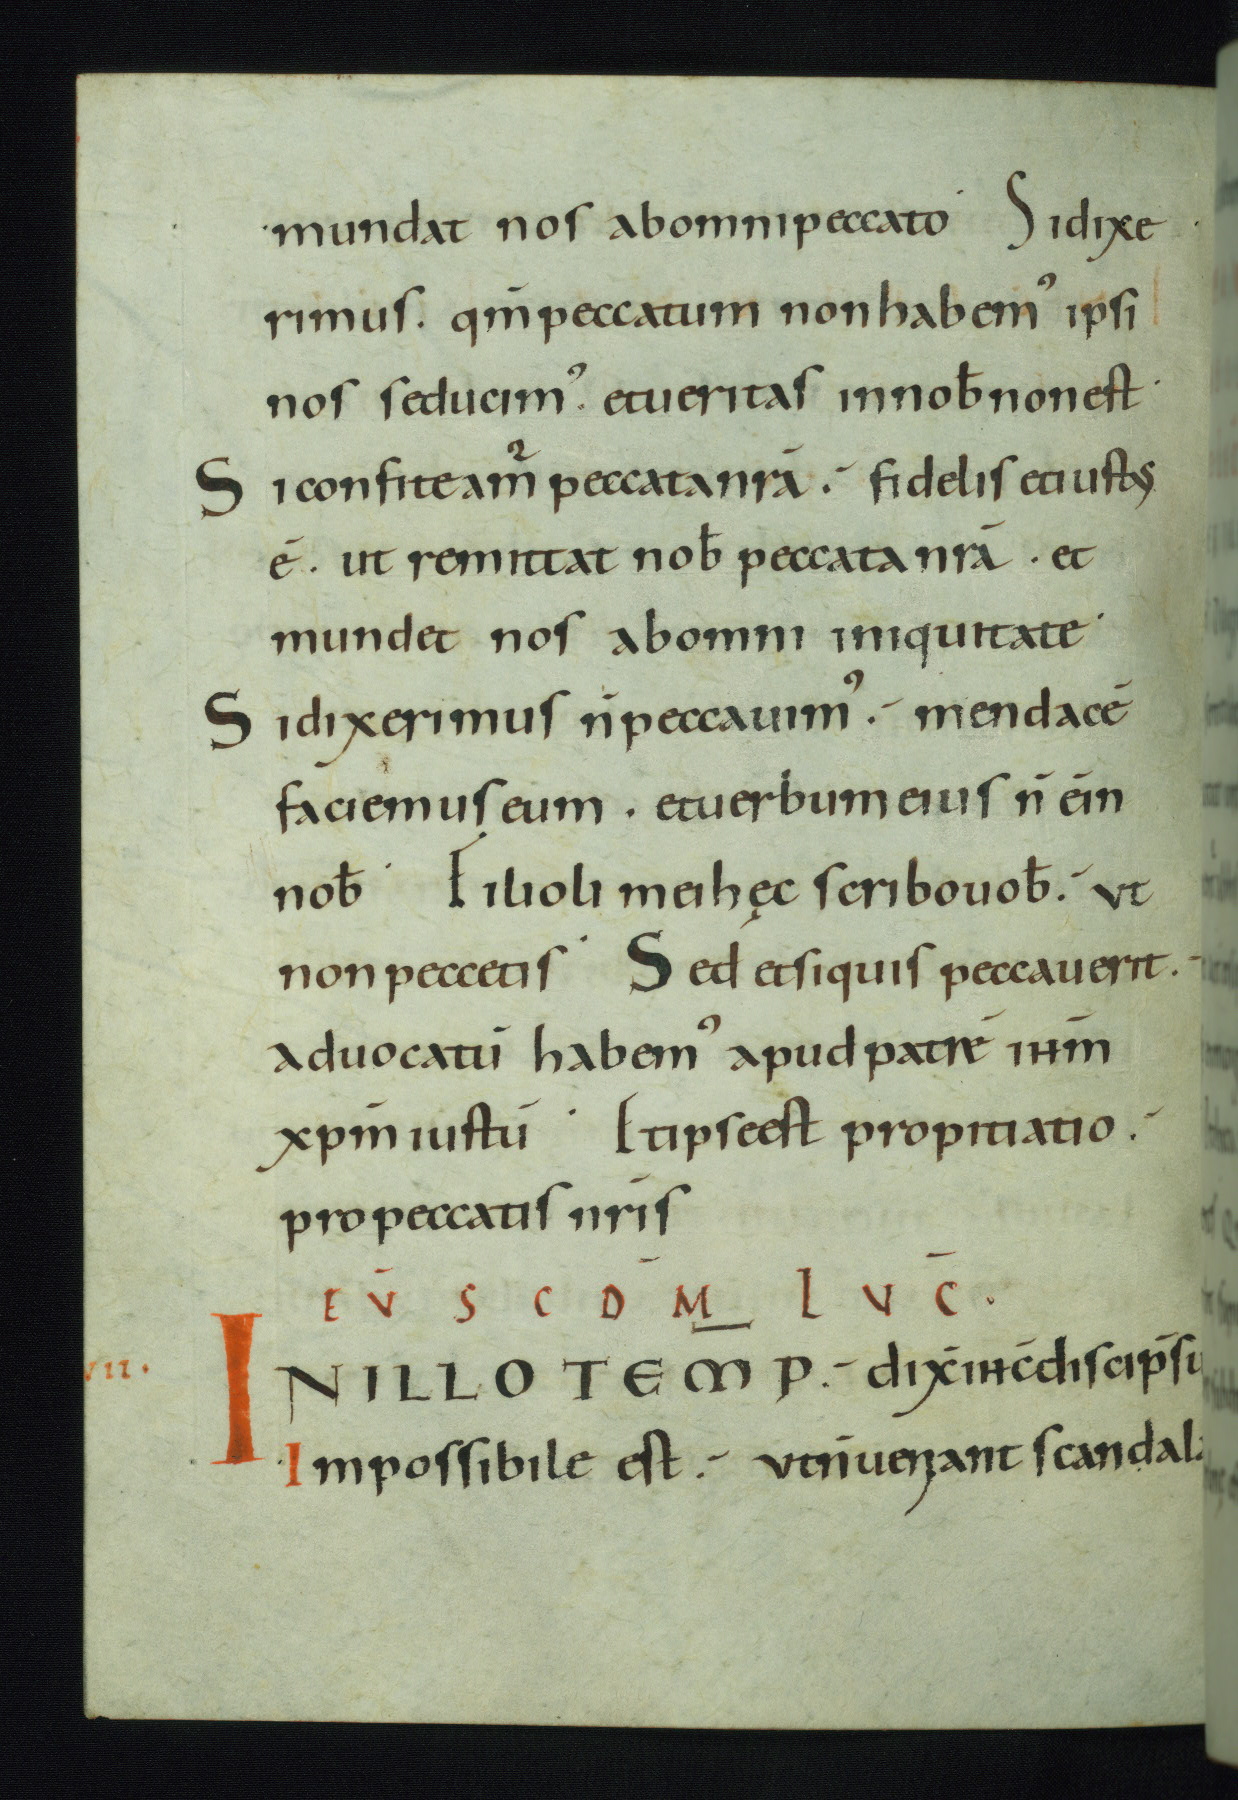 mundat nos abomnipeccato· Sidixe
rimus. qm̄peccatum nonhabem᾽ ipsi
nos seducim᾽. etueritas innob̄nonest·
Siconfiteam̄ᷣpeccatanrā. fidelis etiustus
ē. ut remittat nob̄ peccatanrā. et
mundet nos abomni iniquitate·
Sidixerimus n̄peccauim᾽. mendacē
faciemuseum. etuerbumeius n̄ ēin
nob̄· Filioli meihęc scribouob̄. ut
nonpeccetis· Sed etsiquis peccauerit.
aduocatū habem᾽ apudpatrē ihm̄
xpm̄iustū· Etipseest propitiatio.
propeccatis nrīs
EV̄ SCDM̄ LUC̄.
VII.
INILLO TEMP. dix̄ ihc̄discip̄su
Impossibile est. utn̄ueniant scandala